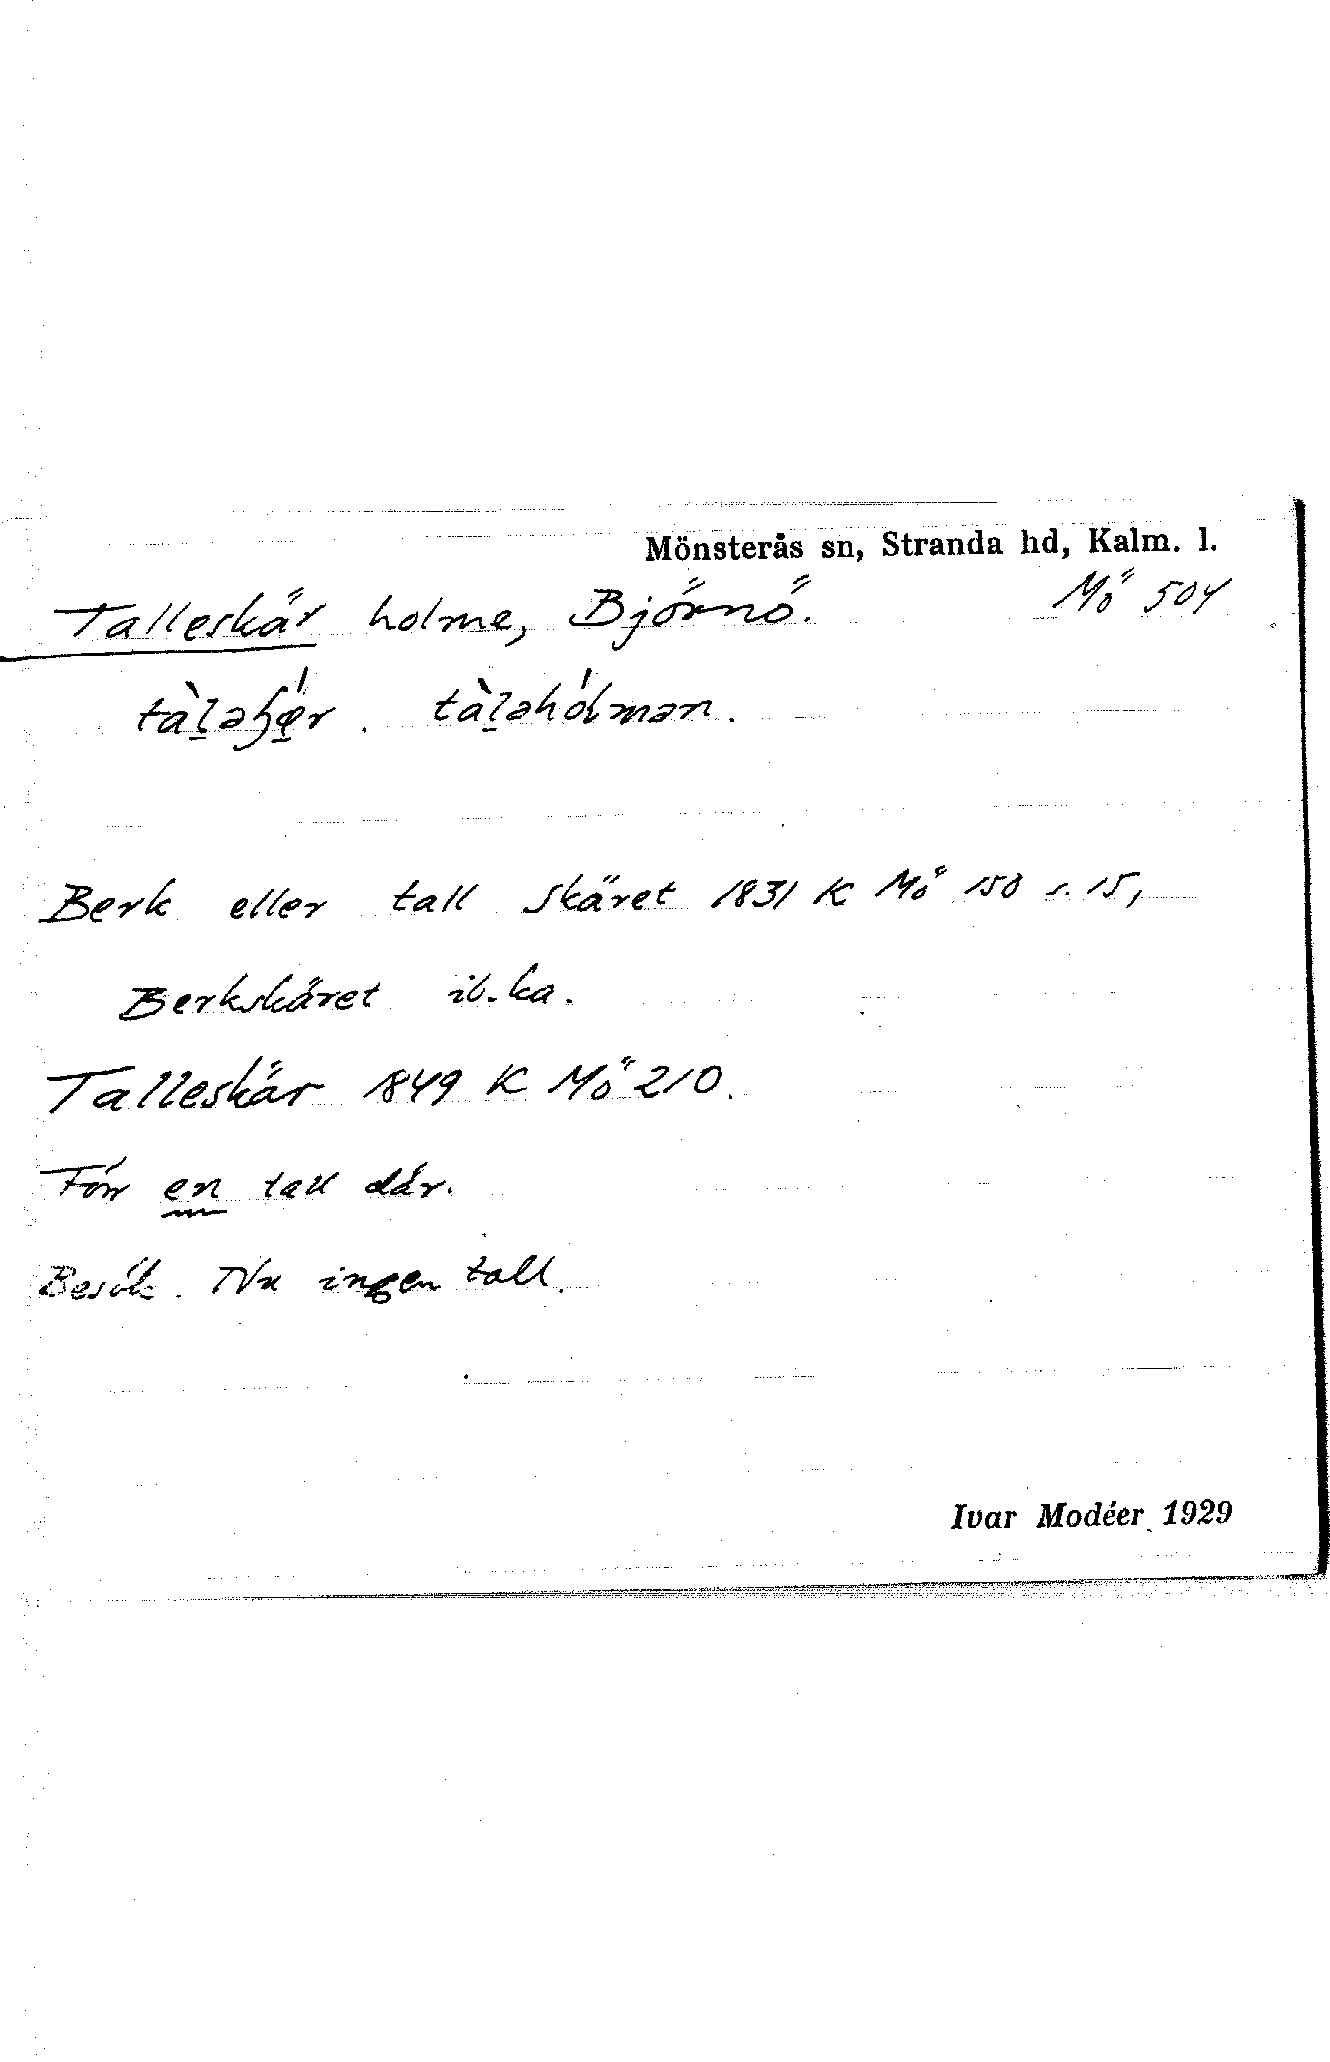 Mönsterås sn, Stranda hd, Kalm. l.
Talleskär holme, Björnö. Mö 504
tàləɧér. tàləhólmən.
Berk eller tall skäret 1831 K Mö 150 s. 15,
Berkskäret ib. ka.
Talleskär 1849 K Mö 210.
Förr en tall där.
Besök. Nu ingen tall.
Ivar Modéer 1929